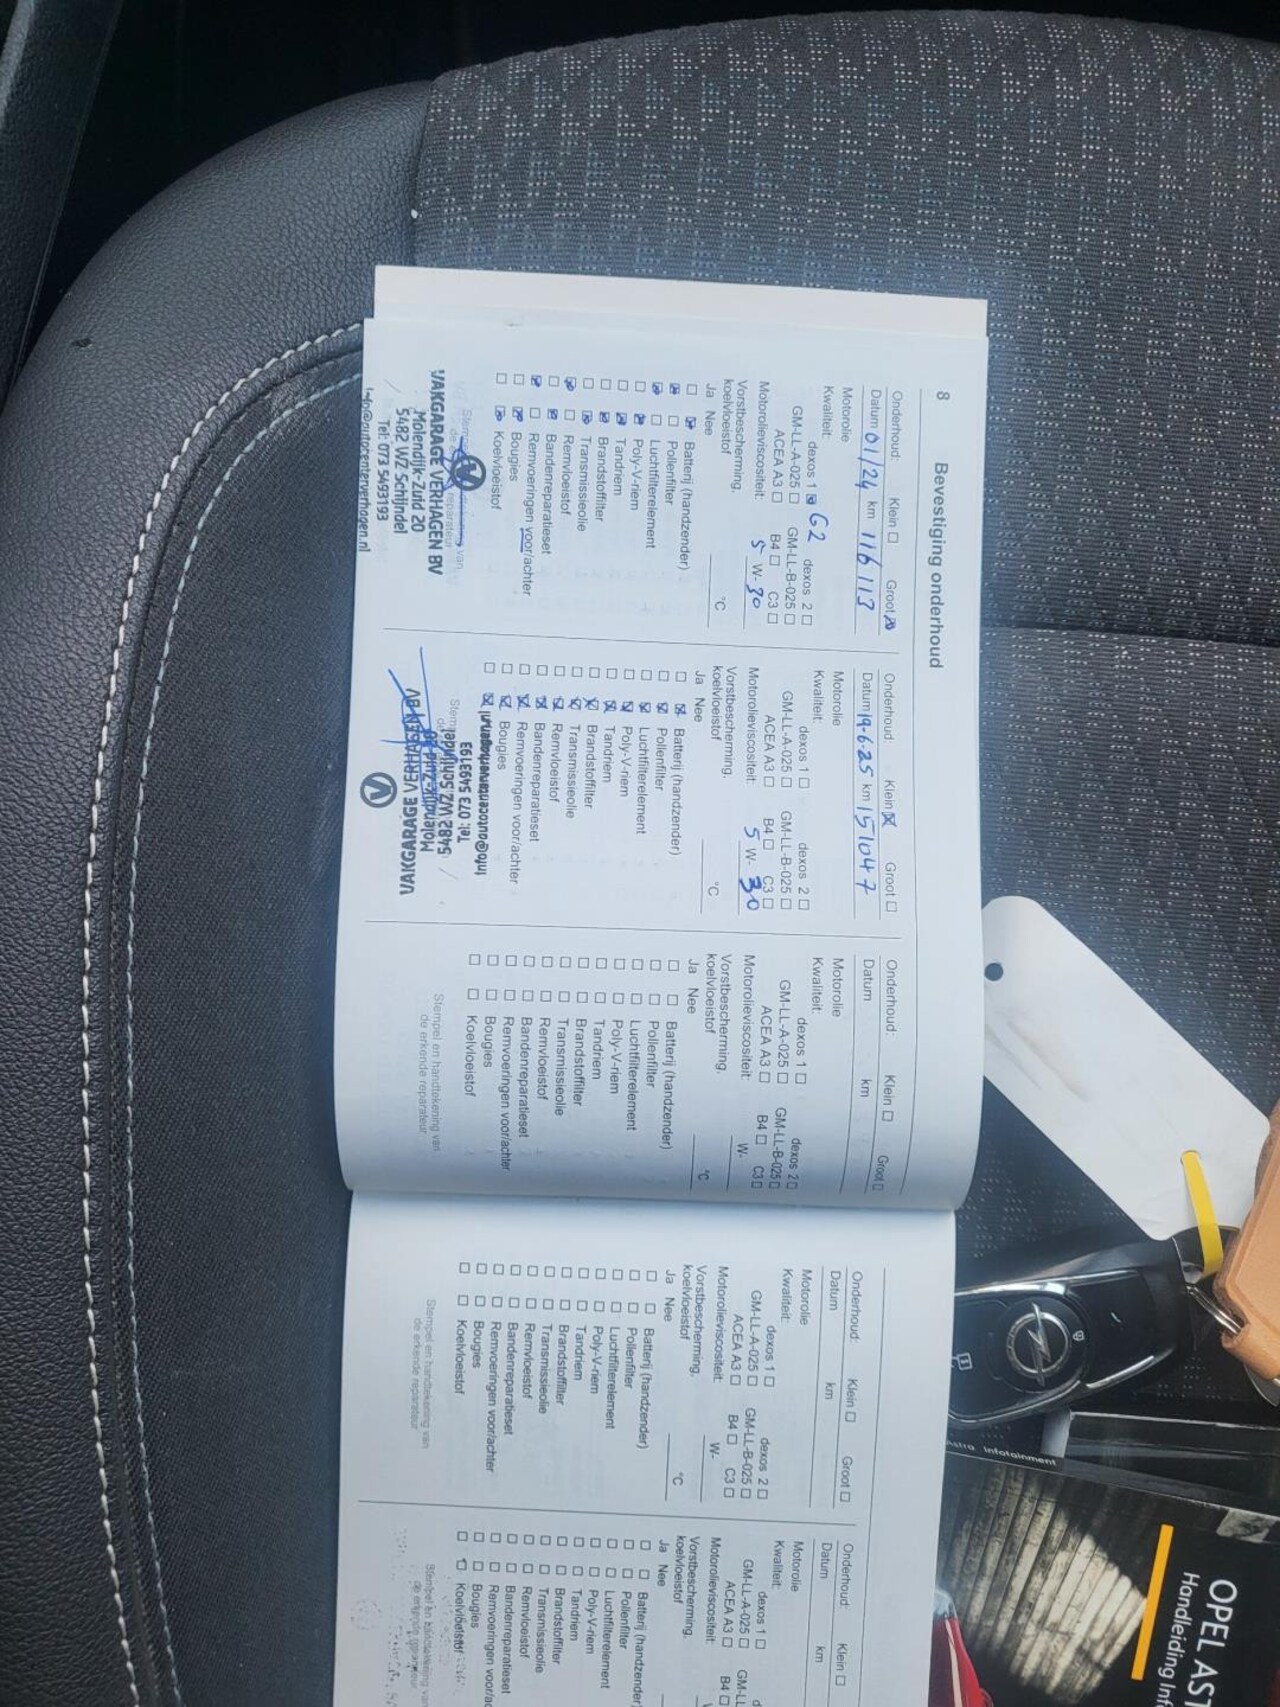 8 Bevestiging onderhoud
Onderhoud: Klein ☐ Groot ☒
Datum 01/24 km 116113
Motorolie
Kwaliteit: dexos 1 ☒ G2 dexos 2 ☐
GM-LL-A-025 ☐ GM-LL-B-025 ☐
ACEA A3 ☐ B4 ☐ C3 ☐
Motorolieviscositeit: 5 W- 30
Vorstbescherming,
koelvloeistof °C
Ja Nee
☐ ☒ Batterij (handzender)
☒ ☐ Pollenfilter
☒ ☐ Luchtfilterelement
☐ ☒ Poly-V-riem
☐ ☒ Tandriem
☐ ☒ Brandstoffilter
☐ ☒ Transmissieolie
☒ ☐ Remvloeistof
☐ ☒ Bandenreparatieset
☒ ☐ Remvoeringen voor/achter
☐ ☒ Bougies
☐ ☒ Koelvloeistof
VAKGARAGE VERHAGEN BV
Molendijk-Zuid 20
5482 WZ Schijndel
Tel: 073 5493193
info@autocenterverhagen.nl
Onderhoud: Klein ☒ Groot ☐
Datum 19-6-25 km 151047
Motorolie
Kwaliteit: dexos 1 ☐ dexos 2 ☐
GM-LL-A-025 ☐ GM-LL-B-025 ☐
ACEA A3 ☐ B4 ☐ C3 ☐
Motorolieviscositeit: 5 W- 30
Vorstbescherming,
koelvloeistof °C
Ja Nee
☐ ☒ Batterij (handzender)
☐ ☒ Pollenfilter
☐ ☒ Luchtfilterelement
☐ ☒ Poly-V-riem
☐ ☒ Tandriem
☐ ☒ Brandstoffilter
☐ ☒ Transmissieolie
☐ ☒ Remvloeistof
☐ ☒ Bandenreparatieset
☐ ☒ Remvoeringen voor/achter
☐ ☒ Bougies
☐ ☒
VAKGARAGE VERHAGEN BV
Molendijk-Zuid 20
5482 WZ Schijndel
Tel: 073 5493193
info@autocenterverhagen.nl
Onderhoud: Klein ☐ Groot ☐
Datum km
Motorolie
Kwaliteit: dexos 1 ☐ dexos 2 ☐
GM-LL-A-025 ☐ GM-LL-B-025 ☐
ACEA A3 ☐ B4 ☐ C3 ☐
Motorolieviscositeit: W-
Vorstbescherming,
koelvloeistof °C
Ja Nee
☐ ☐ Batterij (handzender)
☐ ☐ Pollenfilter
☐ ☐ Luchtfilterelement
☐ ☐ Poly-V-riem
☐ ☐ Tandriem
☐ ☐ Brandstoffilter
☐ ☐ Transmissieolie
☐ ☐ Remvloeistof
☐ ☐ Bandenreparatieset
☐ ☐ Remvoeringen voor/achter
☐ ☐ Bougies
☐ ☐ Koelvloeistof
Stempel en handtekening van
de erkende reparateur
Onderhoud: Klein ☐ Groot ☐
Datum km
Motorolie
Kwaliteit: dexos 1 ☐ dexos 2 ☐
GM-LL-A-025 ☐ GM-LL-B-025 ☐
ACEA A3 ☐ B4 ☐ C3 ☐
Motorolieviscositeit: W-
Vorstbescherming,
koelvloeistof °C
Ja Nee
☐ ☐ Batterij (handzender)
☐ ☐ Pollenfilter
☐ ☐ Luchtfilterelement
☐ ☐ Poly-V-riem
☐ ☐ Tandriem
☐ ☐ Brandstoffilter
☐ ☐ Transmissieolie
☐ ☐ Remvloeistof
☐ ☐ Bandenreparatieset
☐ ☐ Remvoeringen voor/achter
☐ ☐ Bougies
☐ ☐ Koelvloeistof
Stempel en handtekening van
de erkende reparateur
Onderhoud: Klein ☐
Datum km
Motorolie
Kwaliteit: dexos 1 ☐
GM-LL-A-025 ☐ GM-LL
ACEA A3 ☐ B4 ☐
Motorolieviscositeit:
Vorstbescherming,
koelvloeistof
Ja Nee
☐ ☐ Batterij (handzender
☐ ☐ Pollenfilter
☐ ☐ Luchtfilterelement
☐ ☐ Poly-V-riem
☐ ☐ Tandriem
☐ ☐ Brandstoffilter
☐ ☐ Transmissieolie
☐ ☐ Remvloeistof
☐ ☐ Bandenreparatieset
☐ ☐ Remvoeringen voor/ac
☐ ☐ Bougies
☐ ☐ Koelvloeistof
Stempel en handtekening van
de erkende reparateur
Astra Infotainment
OPEL AS
Handleiding Inf